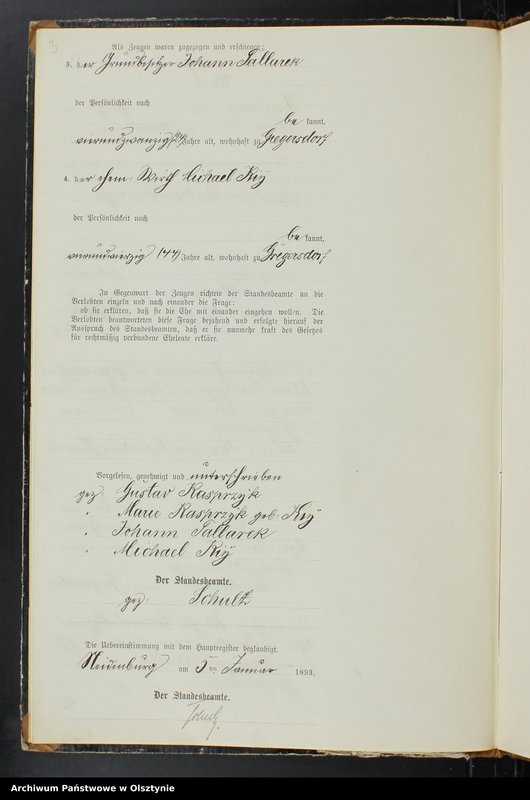 3
Als Zeugen waren zugezogen und erschienen:
3. der Grundbesitzer Johann Sallarek
der Persönlichkeit nach
be kannt,
vierundzwanzig (24) Jahre alt, wohnhaft zu Gregersdorf
4. der ehem. Wirth Michael Kiÿ
der Persönlichkeit nach
be kannt,
vierundvierzig (44) Jahre alt, wohnhaft zu Gregersdorf
In Gegenwart der Zeugen richtete der Standesbeamte an die
Verlobten einzeln und nach einander die Frage:
ob sie erklären, daß sie die Ehe mit einander eingehen wollen. Die
Verlobten beantworteten diese Frage bejahend und erfolgte hierauf der
Ausspruch des Standesbeamten, daß er sie nunmehr kraft des Gesetzes
für rechtmäßig verbundene Eheleute erkläre.
Vorgelesen, genehmigt und unterschrieben
gez. Gustav Kasprzÿk
" Marie Kasprzÿk geb. Kiÿ
" Johann Sallarek
" Michael Kiÿ
Der Standesbeamte.
gez. Schultz
Die Uebereinstimmung mit dem Hauptregister beglaubigt.
am 5 ten Januar 1893.
Der Standesbeamte.
Archiwum Państwowe w Olsztynie